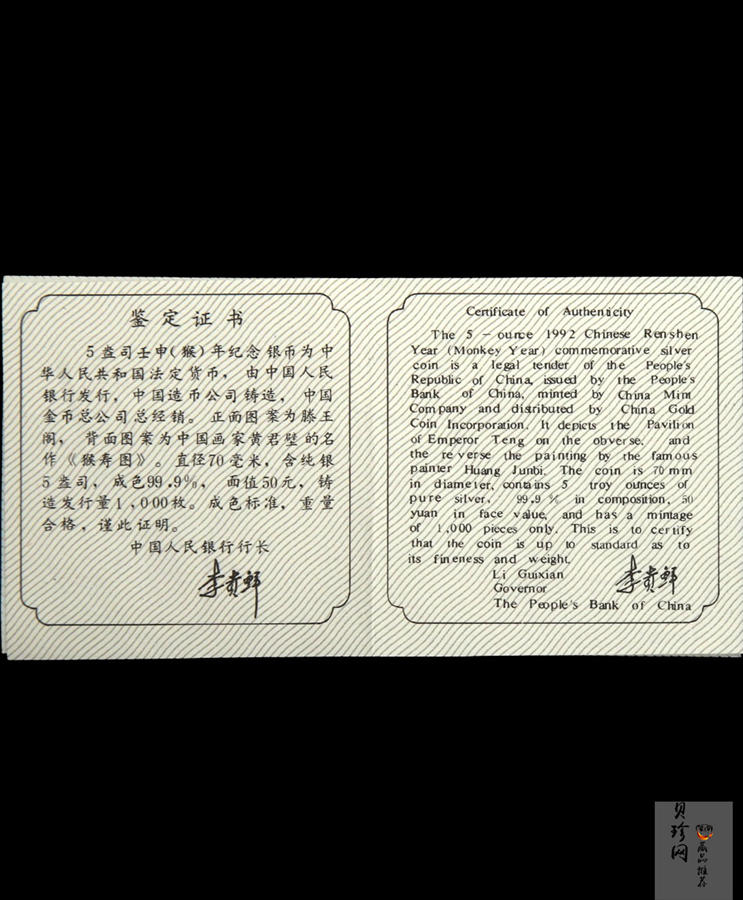 鉴定证书
5盎司壬申(猴)年纪念银币为中
华人民共和国法定货币，由中国人民
银行发行，中国造币公司铸造，中国
金币总公司总经销。正面图案为滕王
阁，背面图案为中国画家黄君壁的名
作《猴寿图》。直径70毫米，含纯银
5盎司，成色99.9%，面值50元，铸
造发行量1,000枚。成色标准，重量
合格，谨此证明。
中国人民银行行长
李贵鲜
Certificate of Authenticity
The 5-ounce 1992 Chinese Renshen
Year (Monkey Year) commemorative silver
coin is a legal tender of the People's
Republic of China, issued by the People's
Bank of China, minted by China Mint
Company and distributed by China Gold
Coin Incorporation. It depicts the Pavilion
of Emperor Teng on the obverse, and
the reverse the painting by the famous
painter Huang Junbi. The coin is 70mm
in diameter, contains 5 troy ounces of
pure silver, 99.9% in composition, 50
yuan in face value, and has a mintage
of 1,000 pieces only. This is to certify
that the coin is up to standard as to
its fineness and weight.
Li Guixian
Governor
The People's Bank of China
李贵鲜
贝珍网
藏品推荐